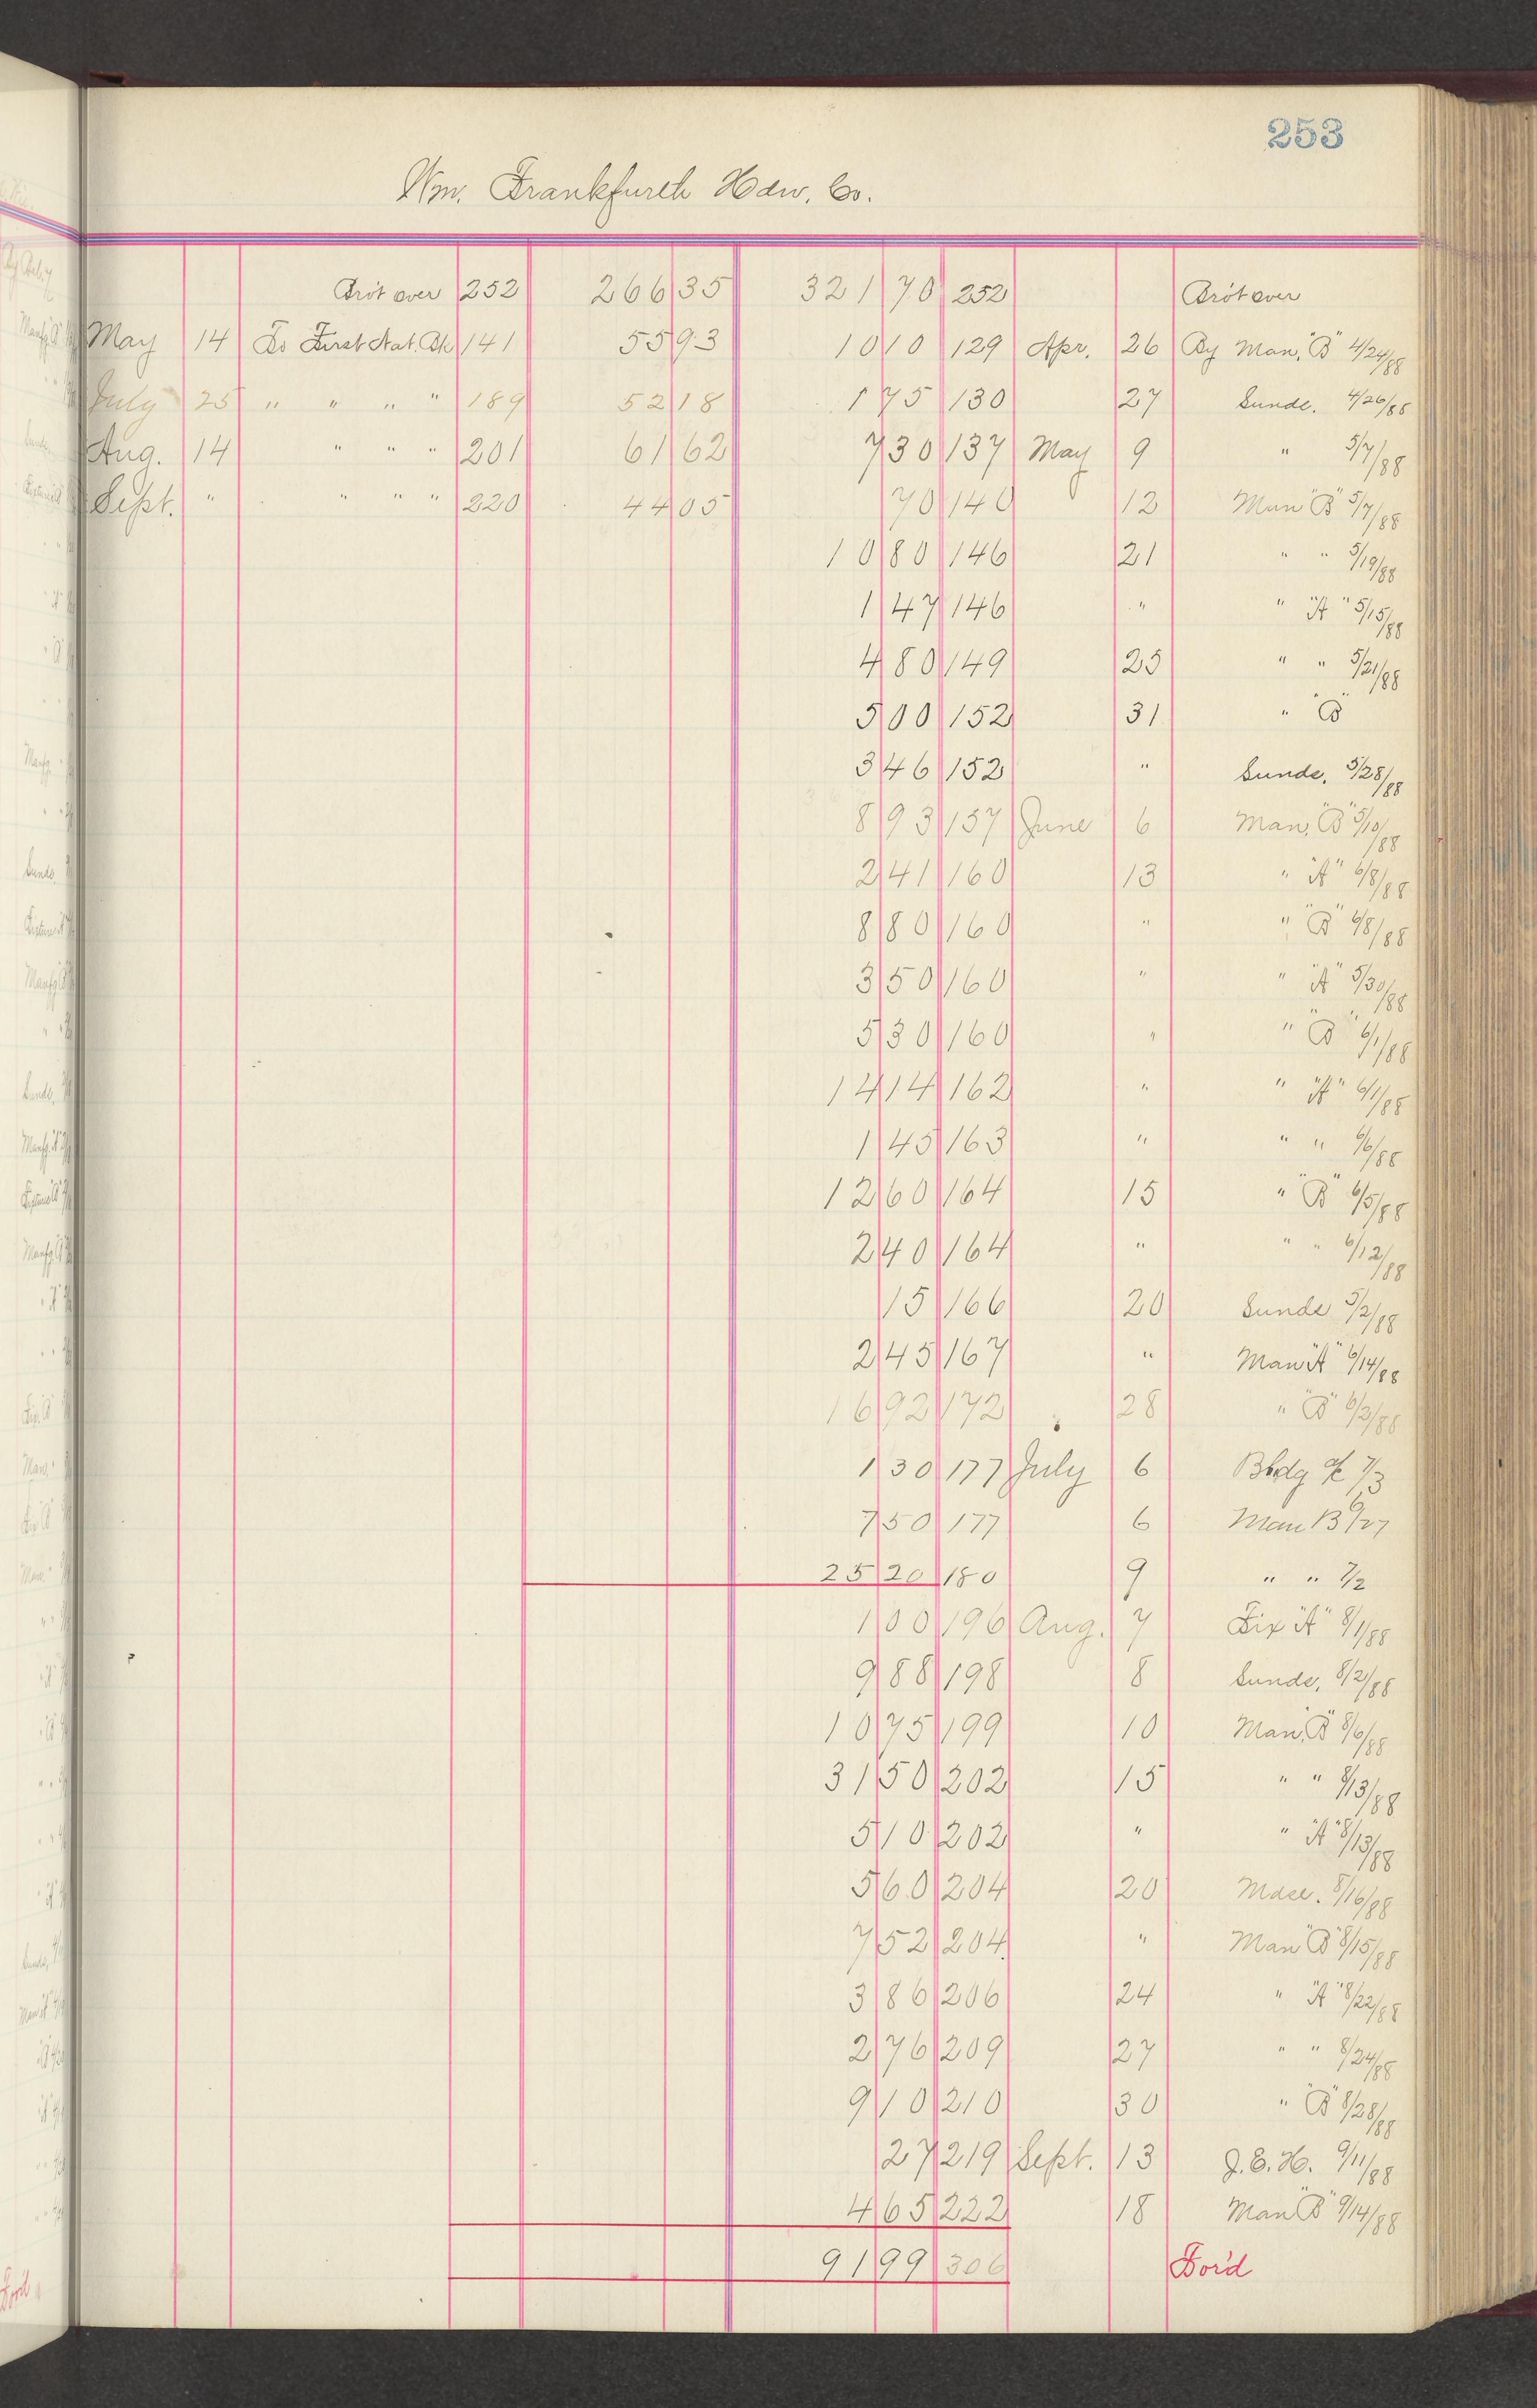 253
Wm. Frankfurth Hdw. Co.
Bro't over 252 266 35 321 70 252 Bro't over
May 14 To First Nat. Bk 141 55 93 10 10 129 Apr. 26 By Man. "B" 4/24/88
July 25 " " " " 189 52 18 1 75 130 27 Sunds. 4/26/88
Aug. 14 " " " 201 61 62 7 30 137 May 9 " 5/7/88
Sept. " " " " 220 44 05 70 140 12 Man "B" 5/7/88
10 80 146 21 " " 5/19/88
1 47 146 " " "A" 5/15/88
4 80 149 25 " " 5/21/88
5 00 152 31 " "B"
3 46 152 " Sunds. 5/28/88
8 93 157 June 6 Man. "B" 5/10/88
2 41 160 13 " "A" 6/8/88
8 80 160 " " "B" 6/8/88
3 50 160 " " "A" 5/30/88
5 30 160 " " "B" 6/1/88
14 14 162 " " "A" 6/1/88
1 45 163 " " " 6/6/88
12 60 164 15 " "B" 6/5/88
2 40 164 " " " 6/12/88
15 166 20 Sunds 5/2/88
2 45 167 " Man "A" 6/14/88
16 92 172 28 " "B" 6/2/88
1 30 177 July 6 Bldg a/c 7/3
7 50 177 6 Man B 6/27
25 20 180 9 " " 7/2
1 00 196 Aug. 7 Fix "A" 8/1/88
9 88 198 8 Sunds. 8/2/88
10 75 199 10 Man. "B" 8/6/88
31 50 202 15 " " 8/13/88
5 10 202 " " "A" 8/13/88
5 60 204 20 Mdse. 8/16/88
7 52 204 " Man "B" 8/15/88
3 86 206 24 " "A" 8/22/88
2 76 209 27 " " 8/24/88
9 10 210 30 " "B" 8/28/88
27 219 Sept. 13 J. E. H. 9/11/88
4 65 222 18 Man "B" 9/14/88
91 99 306 For'd